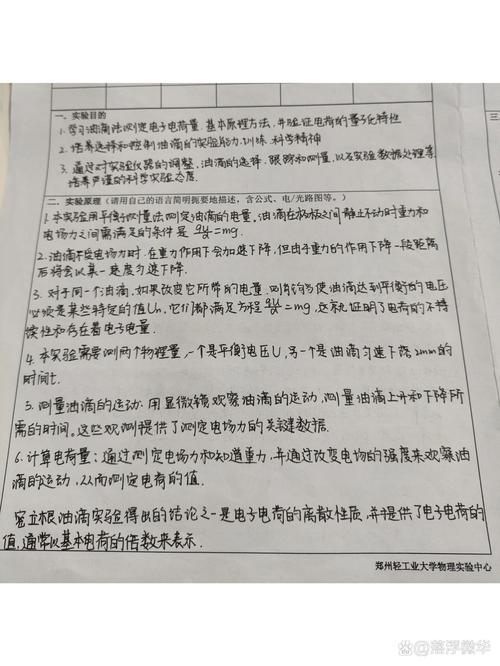 一、实验目的
1.学习油滴法测定电子电荷量 基本原理方法,并验证电荷的量子化特性
2.培养选择和控制油滴的实验能力,训练科学精神
3.通过对实验仪器的调整,油滴的选择、跟踪和测量,以及实验数据处理等,
培养严谨的科学实验态度.
二、实验原理(请用自己的语言简明扼要地描述,含公式、电/光路图等。)
1.本实验用平衡测量法测定油滴的电量。油滴在极板之间静止不动时重力和
电场力之间需满足的条件是 qU/d=mg.
2.油滴不受电场力时.在重力作用下会加速下降,但由于重力的作用下降一段距离
后将会以某一速度匀速下降.
3.对于同一个油滴,如果改变它所带的电量,则能够使油滴达到平衡的电压
必须是某些特定的值Un,它们都满足方程qU/d=mg,这就证明了电荷的不持
续性和存在着电子电量.
4.本实验需要测两个物理量,一个是平衡电压U,另一个是油滴匀速下落2mm的
时间t.
5.测量油滴的运动:用显微镜观察油滴的运动,测量油滴上升和下降所
需的时间。这些观测提供了测定电场力的关键数据.
6.计算电荷量:通过测定电场力和知道重力,并通过改变电场的强度来观察油
滴的运动,从而测定电荷的值.
密立根油滴实验得出的结论之一是电子电荷的离散性质,并提供了电子电荷的
值,通常以基本电荷的倍数来表示.
郑州轻工业大学物理实验中心
三
@落浮微华